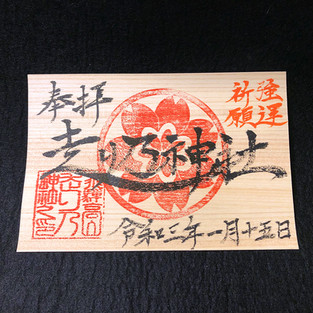 奉拝
強運
祈願
神社
令和三年一月十五日